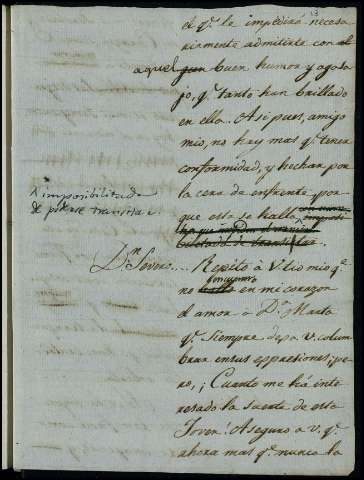 13
el q.e le impedirá necesa
riamente admitirte con al
aquel gun buen humor y agasa
jo, q.e tanto han brillado
en ella. Asi pues, amigo
mio, no hay mas q.e tener
conformidad, y hechar por
la cera de enfrente por
que esta se halla
imposibilitada
de poderse transitar
D.n Severo.... Repito à V. tio mio q.e
no en mi corazon
el amor à D.a Marta
q.e siempre dejó V. colum
brar en sus expresiones; pe
ro, ¡ Cuanto me há inte
resado la suerte de esta
Joven! Aseguro à V. q.e
ahora mas q.e nunca la